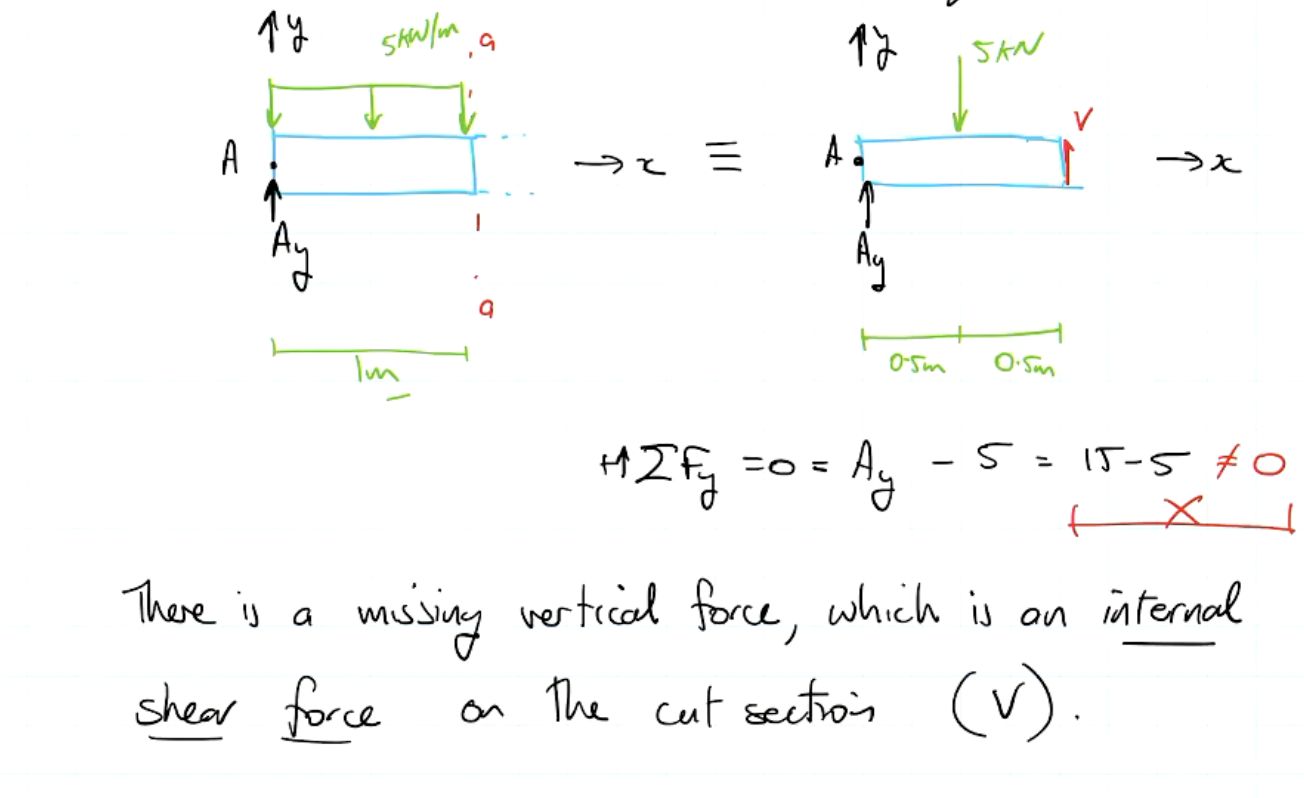 ↑y 5kN/m a ↑y 5kN
V
A →x ≡ A →x
Ay Ay
a
1m 0.5m 0.5m
+↑ΣFy = 0 = Ay - 5 = 15-5 ≠ 0
X
There is a missing vertical force, which is an internal
shear force on the cut section (V).